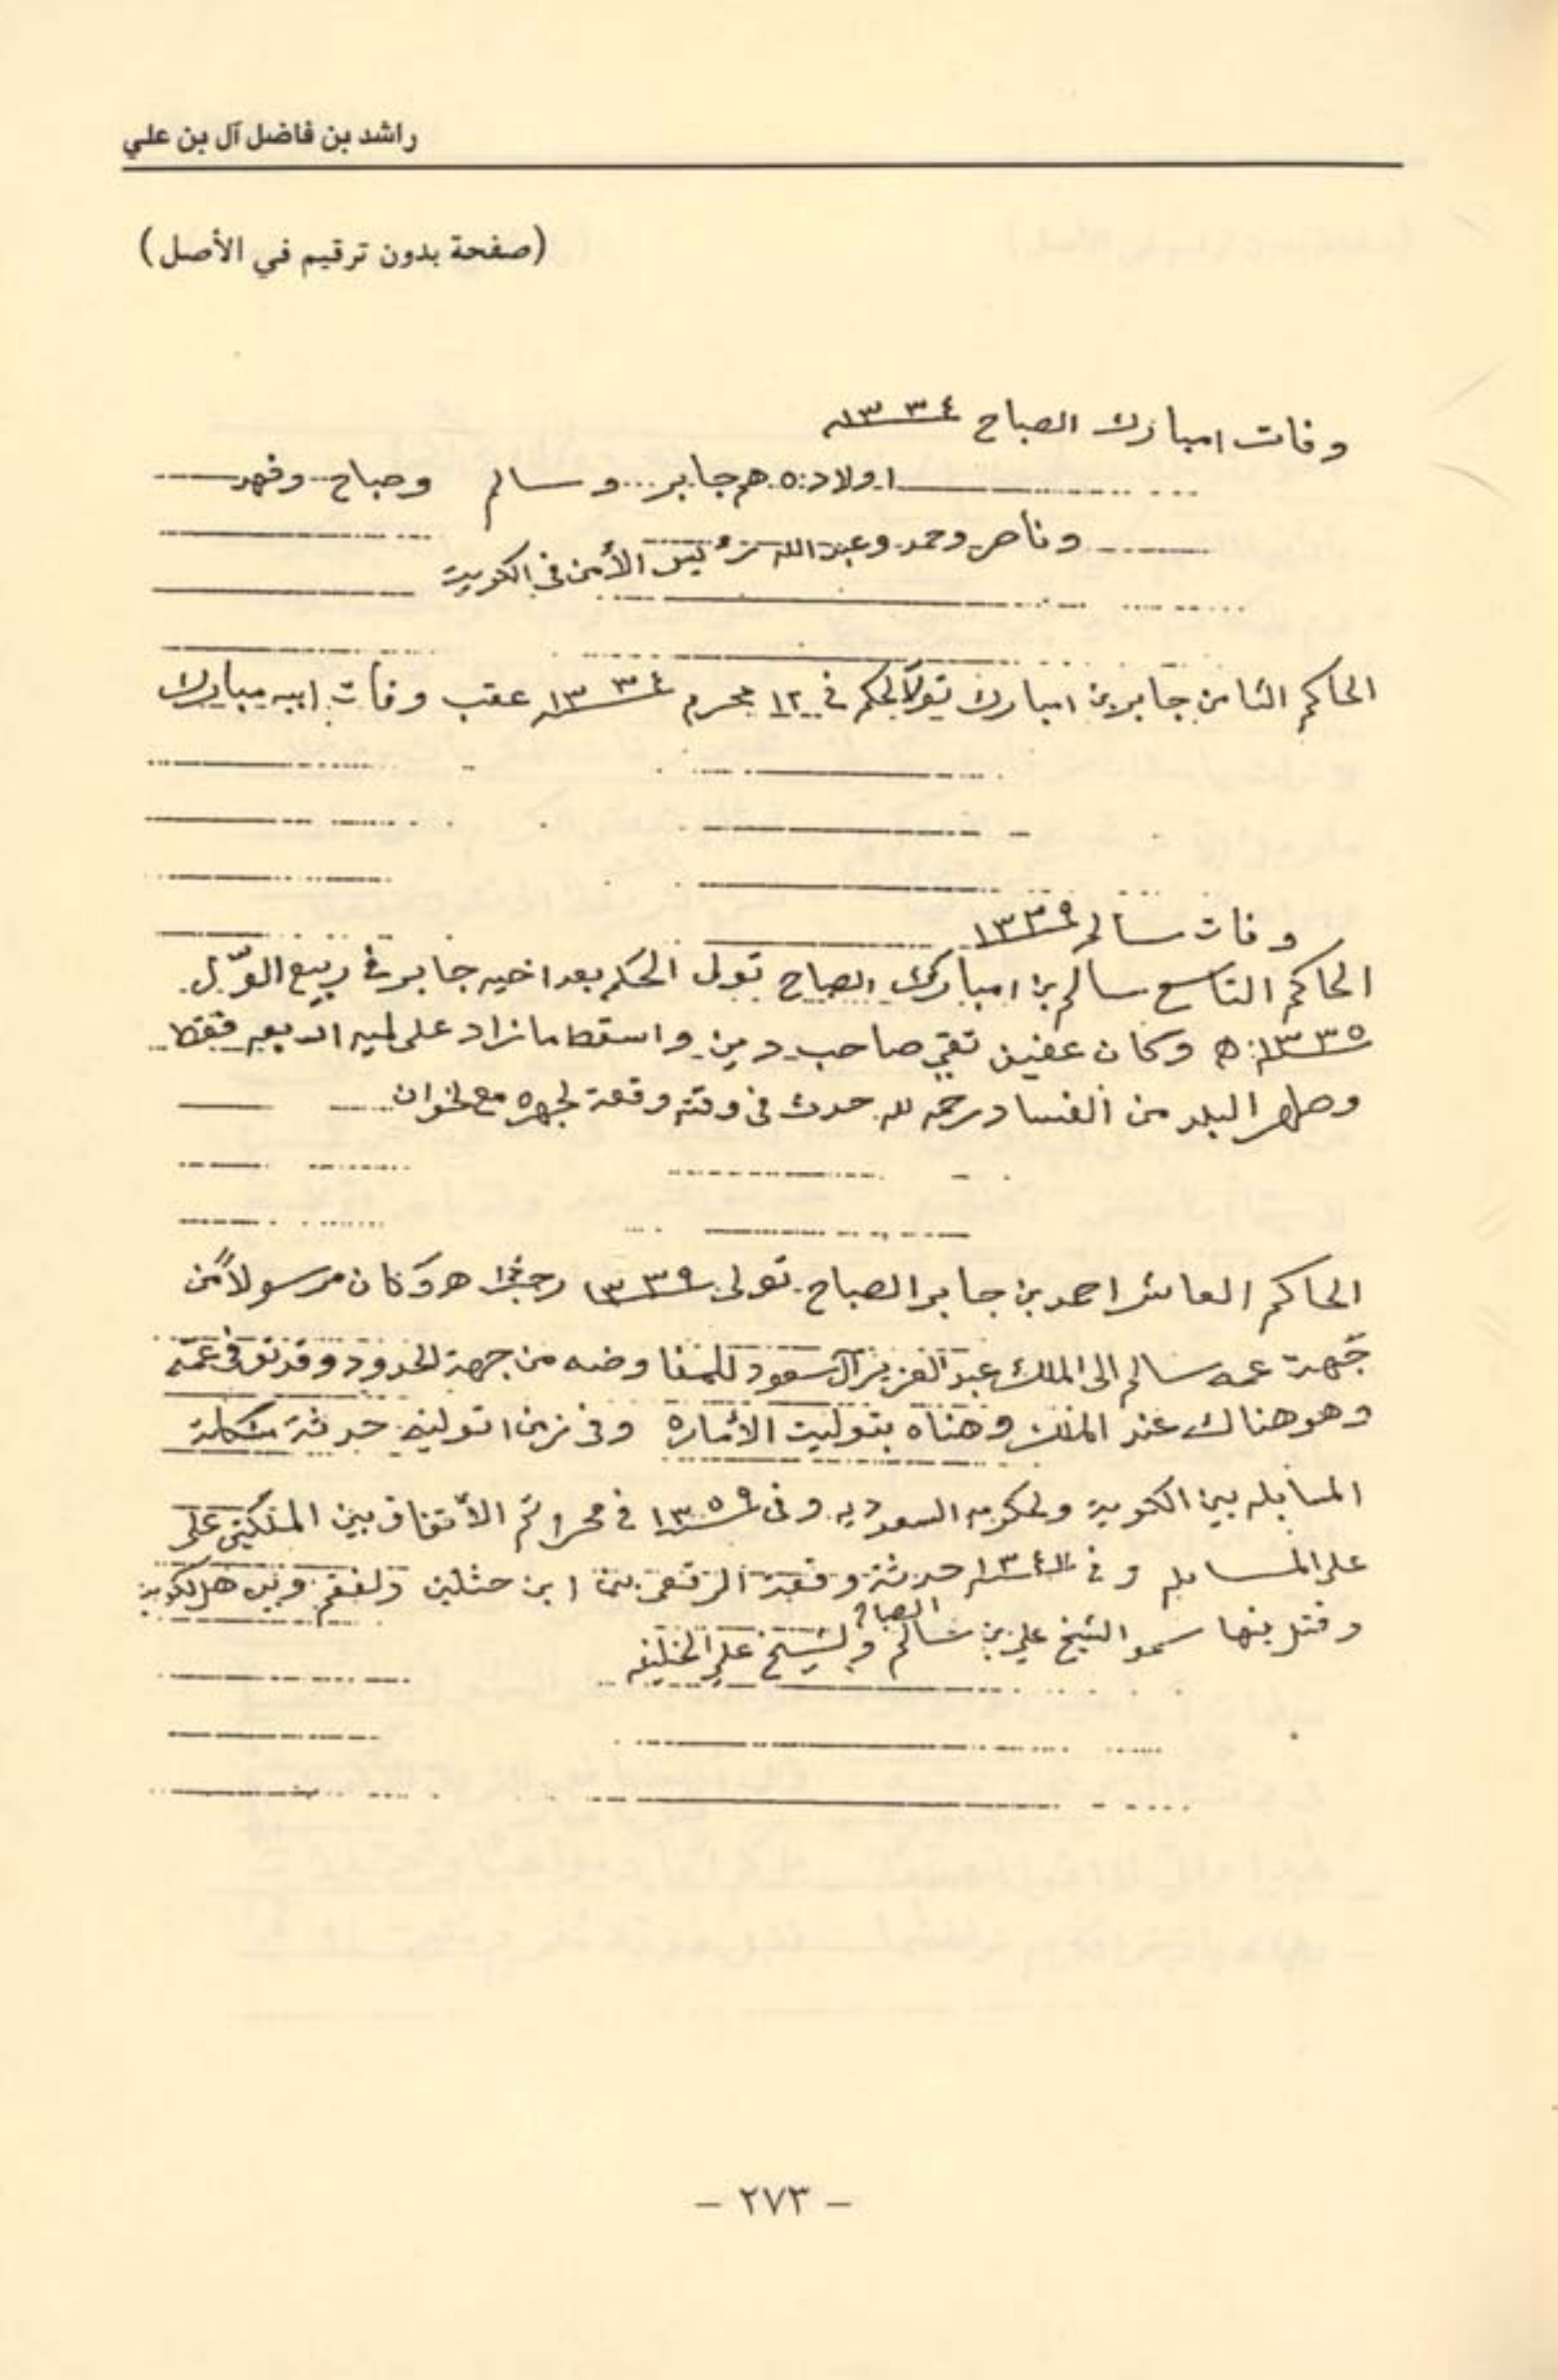 راشد بن فاضل آل بن علي
(صفحة بدون ترقيم في الأصل)
وفات امبارك الصباح ١٣٣٤
اولاده هم جابر وسالم وصباح وفهد
وناصر وحمد وعبد الله رئيس الأمن في الكويت
الحاكم الثامن جابر بن امبارك تولا لحكم في ١٢ محرم ١٣٣٤ عقب وفات ابيه مبارك
وفات سالم ١٣٣٩
الحاكم التاسع سالم بن امبارك الصباح تولى الحكم بعد اخيه جابر في ربيع الوّل
١٣٣٥ هـ وكان عفيف تقي صاحب دين واسقط ما زاد على لميه اربعه فقط
وطهر البلد من الفساد رحمه لله حدث في وقته وقعة لجهره مع لخوان
الحاكم العاشر احمد بن جابر الصباح تولى ١٣٣٩ هـ وكان مرسولاً من
جهت عمه سالم الى الملك عبد العزيز آل سعود للمفاوضه من جهة الحدود وقد توفى عمه
وهو هناك عند الملك وهناه بتوليت الأماره وفي زمن اتوليه حدثة مشكلة
المسابله بين الكويت ولحكومه السعوديه وفي ١٣٥٩ في محرم تم الأتفاق بين المملكتين على
على المسابله وفي حدثة وقعة الرقعي بين ابن حثلين وبين هل لكويت
وقتل بنها سمو الشيخ علي بن سالم الصباح ولشيخ علي الخليفه
- ٢٧٣ -